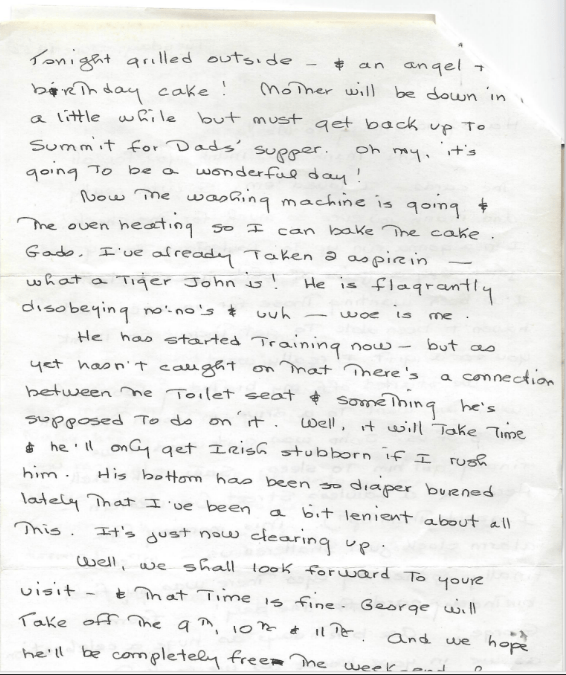 Tonight grilled outside – & an angel +
birthday cake! Mother will be down in
a little while but must get back up to
Summit for Dads' supper. Oh my, it's
going to be a wonderful day!
Now the washing machine is going &
the oven heating so I can bake the cake.
Gads. I've already taken 2 aspirin —
what a Tiger John is! He is flagrantly
disobeying no-no's & uuh — woe is me.
He has started training now – but as
yet hasn't caught on that there's a connection
between the toilet seat & something he's
supposed to do on it. Well, it will take time
& he'll only get Irish stubborn if I rush
him. His bottom has been so diaper burned
lately that I've been a bit lenient about all
this. It's just now clearing up.
Well, we shall look forward to your
visit – & that time is fine. George will
take off the 9th, 10th & 11th. And we hope
he'll be completely free the week-end